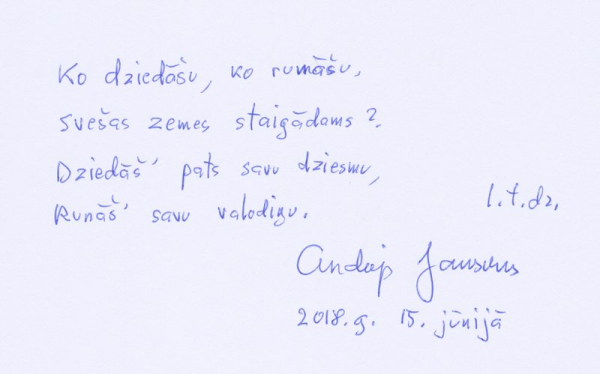 Ko dziedāšu, ko runāšu,
Svešas zemes staigādams?
Dziedāš' pats savu dziesmu,
Runāš' savu valodiņu.
l.t.dz.
Andejs Jansons
2018.g. 15. jūnijā